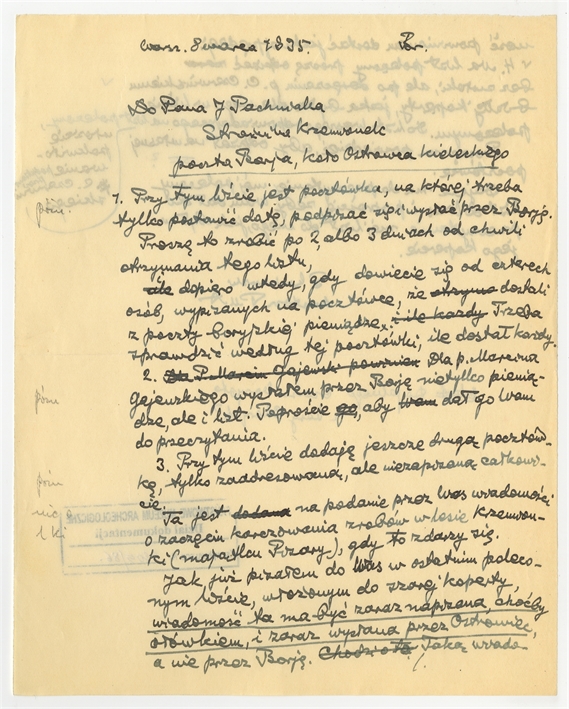 Warsz. 8 marca 1935. Br.
Do Pana J Pachniaka
Krzemionek
poczta Borja, koło Ostrowca kieleckiego
1. Przy tym liście jest pocztówka, na której trzeba
tylko postawić datę, podpisać się i wysłać przez Borję.
Proszę to zrobić po 2 albo 3 dniach od chwili
otrzymania tego listu,
ale dopiero wtedy, gdy dowiecie się od czterech
osób, wypisanych na pocztówce, że otrzyma dostali
z poczty boryjskiej pieniądze, i ile każdy Trzeba
sprawdzić według tej pocztówki, ile dostał każdy
2. Dla P. Marcin Gajewski powinien Dla p. Marcina
Gajewskiego wysłałem przez Borję nietylko pienią-
dze, ale i list. Poproście go, aby Wam dał go Wam
do przeczytania.
3. Przy tym liście dodaję jeszcze drugą pocztów-
kę, tylko zaadresowaną, ale niezapisaną całkowi-
cie.
Ta jest dodana na podanie przez Was wiadomości
o zaczęciu karczowania zrębów w lesie krzemion-
ki (majątku ), gdy to zdarzy się.
Jak już pisałem do Was w ostatnim poleco-
nym liście, włożonym do szarej koperty,
wiadomość ta ma być zaraz napisana, choćby
ołówkiem, i zaraz wysłana przez Ostrowiec,
a nie przez Borję. Chodzi o tę Taką wiado-